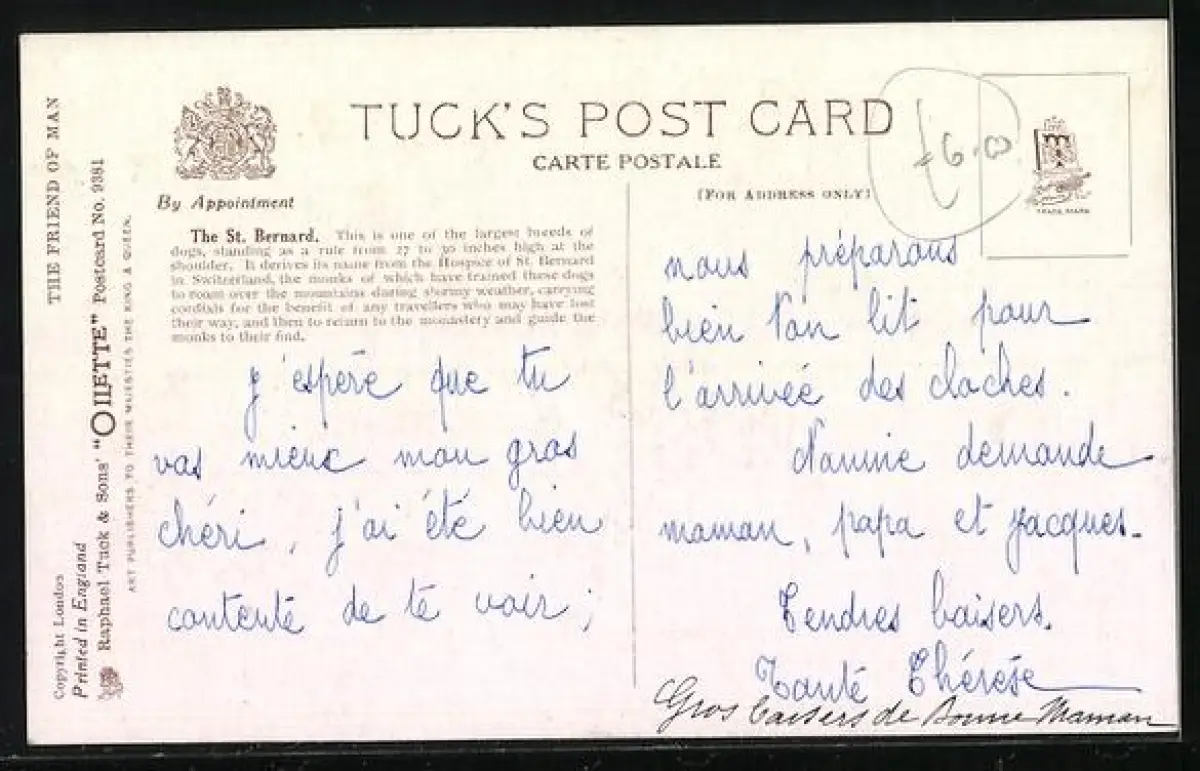 THE FRIEND OF MAN
Copyright London
Printed in England
Raphael Tuck & Sons' "OILETTE" Postcard No. 9381
ART PUBLISHERS TO THEIR MAJESTIES THE KING & QUEEN.
TUCK'S POST CARD
CARTE POSTALE
By Appointment
(FOR ADDRESS ONLY)
£6.00
TRADE MARK
The St. Bernard. This is one of the largest breeds of
dogs, standing as a rule from 27 to 30 inches high at the
shoulder. It derives its name from the Hospice of St. Bernard
in Switzerland, the monks of which have trained these dogs
to roam over the mountains during stormy weather, carrying
cordials for the benefit of any travellers who may have lost
their way, and then to return to the monastery and guide the
monks to their find.
J'espère que tu
vas mieux mon gros
chéri, j'ai été bien
contente de te voir;
nous préparons
bien ton lit pour
l'arrivée des cloches.
demande
maman, papa et Jacques.
Tendres baisers.
Tante Thérèse
Gros baisers de Bonne Maman